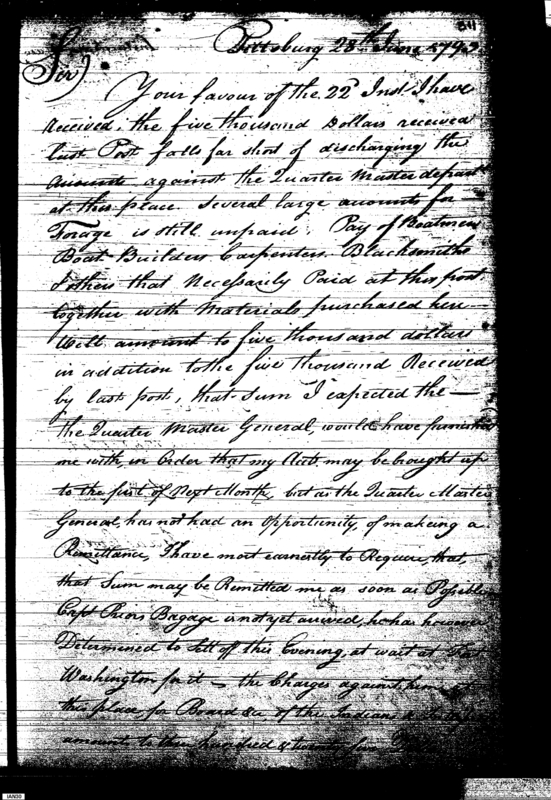 Pittsburg 28th June 1792
Sir
Your favour of the 22d Inst I have
Received, the five thousand Dollars received
last Post falls far short of discharging the
Accounts against the Quarter Master depart
at this place Several large accounts for
Forage is still unpaid, Pay of Boatmen
Boat Builders Carpenters Blacksmiths
& others that Necessarily Paid at this post
together with Materials purchased here
Will amount to five thousand dollars
in addition to the five thousand Received
by last post, that Sum I expected the
the Quarter Master General, would have furnished
me with, in Order that my Accts may be brought up
to the first of Next Month, but as the Quarter Master
General, has not had an Opportunity, of making a
Remittance, I have most earnestly to Require, that,
that Sum may be Remitted me as soon as Possible
Capt Priors Bagage is not yet arrived, he has however
Determined to Sett off this Evening, at wait at Fort
Washington for it — the Charges against him at
this place, for Board &c of the Indians
amounts to three hundred & twenty five